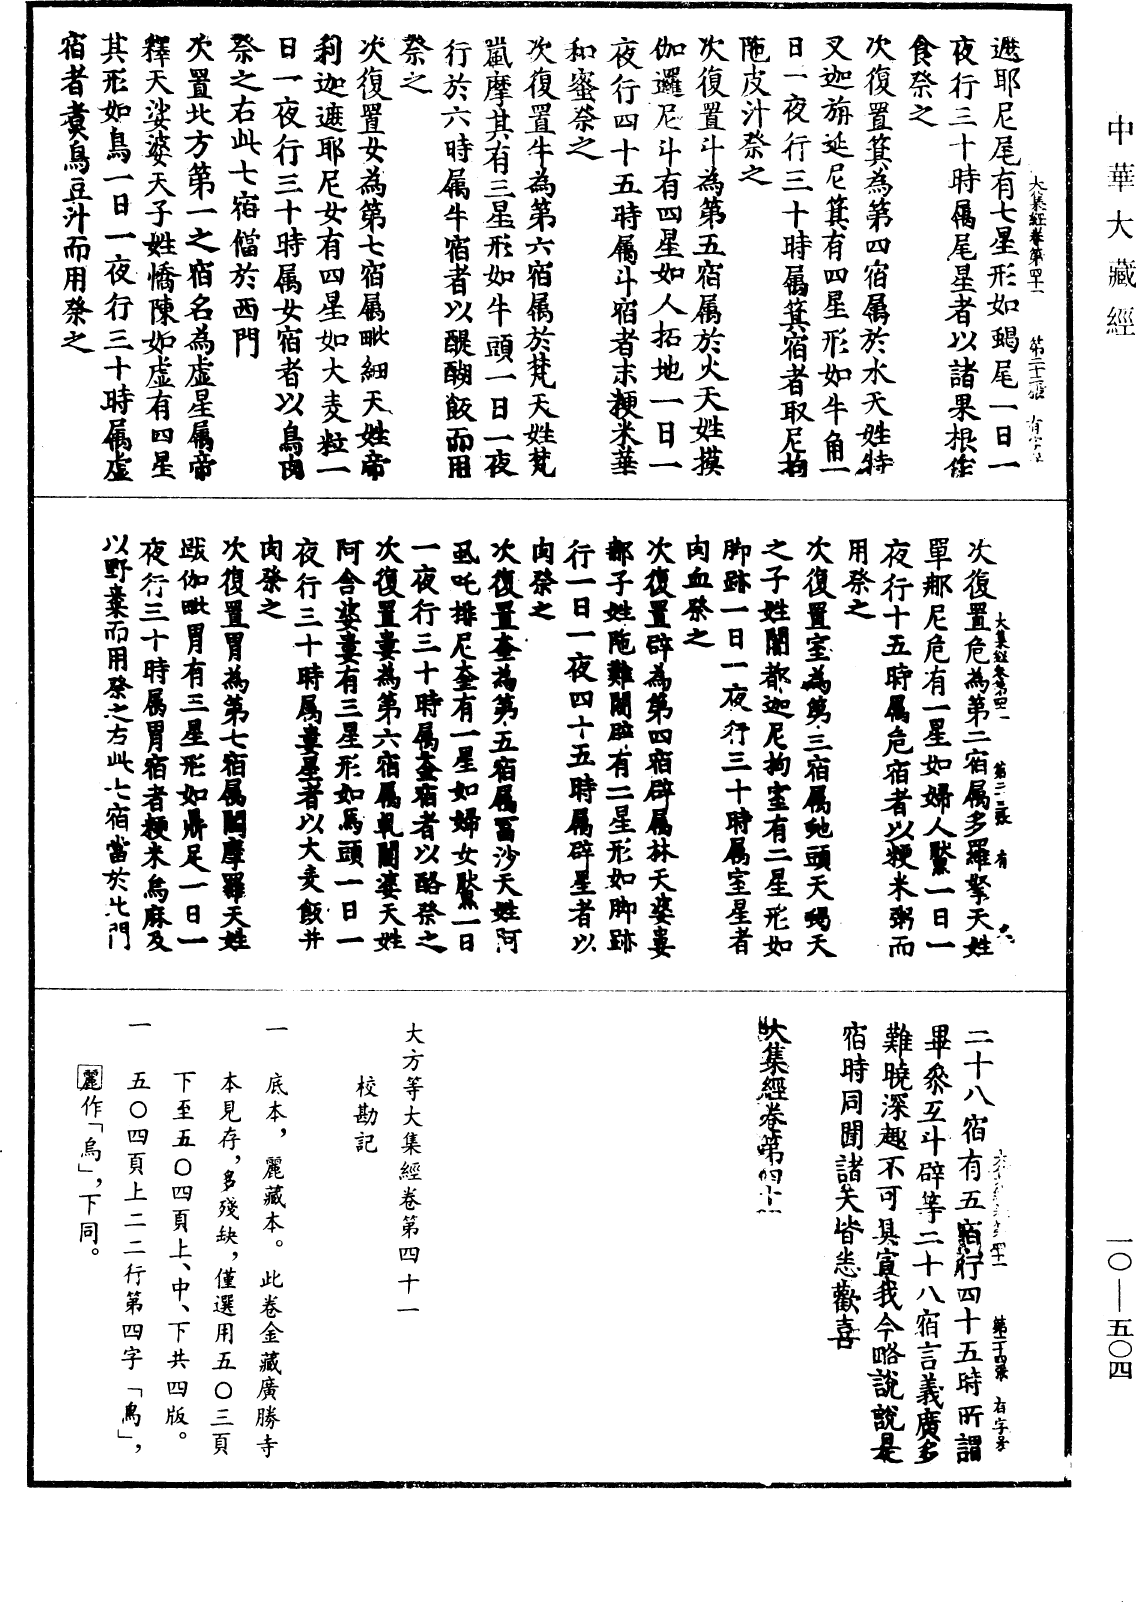 中華大藏經
大集經卷第四十一 第二十二張 有字号
遮耶尼尾有七星形如蝎尾一日一
夜行三十時属尾星者以諸果根作
食祭之
次復置箕為第四宿属於水天姓特
叉迦旃延尼箕有四星形如牛角一
日一夜行三十時属箕宿者取尼拘
陁皮汁祭之
次復置斗為第五宿属於火天姓摸
伽邏尼斗有四星如人拓地一日一
夜行四十五時属斗宿者末粳米華
和蜜祭之
次復置牛為第六宿属於梵天姓梵
嵐摩其有三星形如牛頭一日一夜
行於六時属牛宿者以醍醐飯而用
祭之
次復置女為第七宿属毗紐天姓帝
利迦遮耶尼女有四星如大麦粒一
日一夜行三十時属女宿者以鳥肉
祭之右此七宿當於西門
次置北方第一之宿名為虛星属帝
釋天娑婆天子姓憍陳如虛有四星
其形如鳥一日一夜行三十時属虛
宿者煑烏豆汁而用祭之
大集經卷第四十一 第二十三張 有
次復置危為第二宿属多羅拏天姓
單那尼危有一星如婦人黶一日一
夜行十五時属危宿者以粳米粥而
用祭之
次復置室為第三宿属虵頭天蝎天
之子姓闍都迦尼拘室有二星形如
脚跡一日一夜行三十時属室星者
肉血祭之
次復置辟為第四宿辟属林天婆婁
那子姓陁難闍辟有二星形如脚跡
行一日一夜四十五時属辟星者以
肉祭之
次復置奎為第五宿属富沙天姓阿
虱吒排尼奎有一星如婦女黶一日
一夜行三十時属奎宿者以酪祭之
次復置婁為第六宿属乹闥婆天姓
阿含婆婁有三星形如馬頭一日一
夜行三十時属婁星者以大麦飯并
肉祭之
次復置胃為第七宿属閻摩羅天姓
跋伽毗胃有三星形如鼎足一日一
夜行三十時属胃宿者粳米烏麻及
以野棗而用祭之右此七宿當於北門
第二十四張 右字号
二十八宿有五宿行四十五時所謂
畢叅亙斗辟等二十八宿言義廣多
難曉深趣不可具宣我今略說說是
宿時同聞諸天皆悉歡喜
大集經卷第四十一
大方等大集經卷第四十一
校勘記
一 底本，麗藏本。此卷金藏廣勝寺
本見存，多殘缺，僅選用五〇三頁
下至五〇四頁上、中、下共四版。
一 五〇四頁上二二行第四字「鳥」，
麗作「烏」，下同。
一〇—五〇四